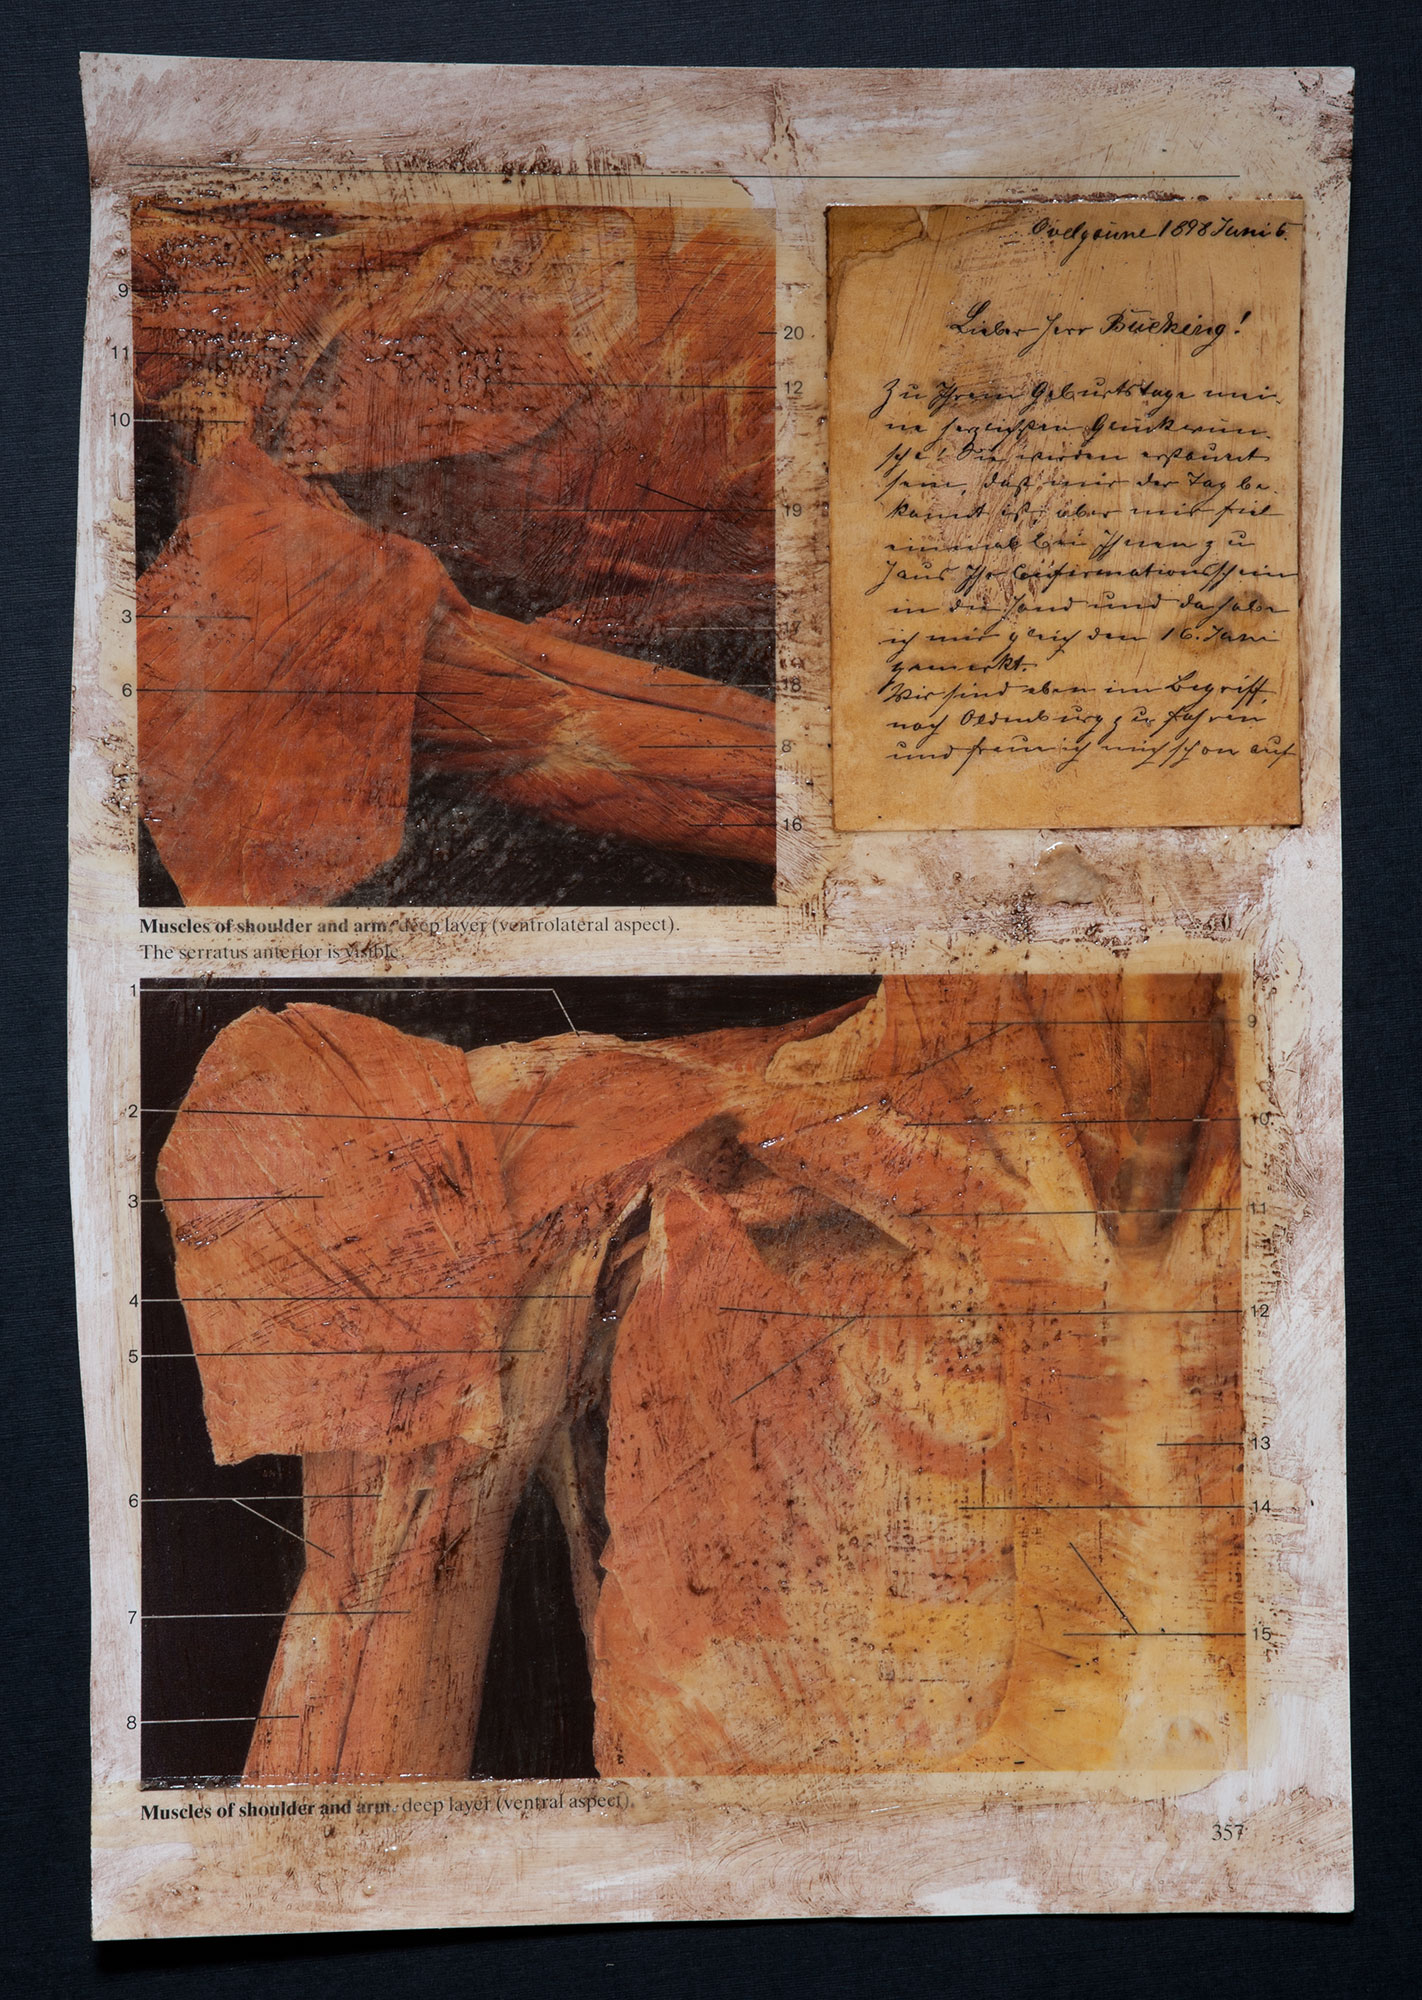 9
11
10
3
6
20
12
19
17
18
8
16
Ovelgönne 1898 Juni 6.
Lieber Herr Bücking!
Zu Ihrem Geburtstage mei-
ne herzlichsten Glückwün-
sche! Sie werden erstaunt
sein, daß mir der Tag be-
kannt ist, aber mir fiel
einmal bei Ihnen zu
Haus Ihr Confirmationsschein
in die Hand und da habe
ich mir gleich den 16. Juni
gemerkt.
Wir sind eben im Begriff,
nach Oldenburg zu fahren
und freue ich mich schon auf
Muscles of shoulder and arm, deep layer (ventrolateral aspect).
The serratus anterior is visible.
1
2
3
4
5
6
7
8
9
10
11
12
13
14
15
Muscles of shoulder and arm, deep layer (ventral aspect).
357